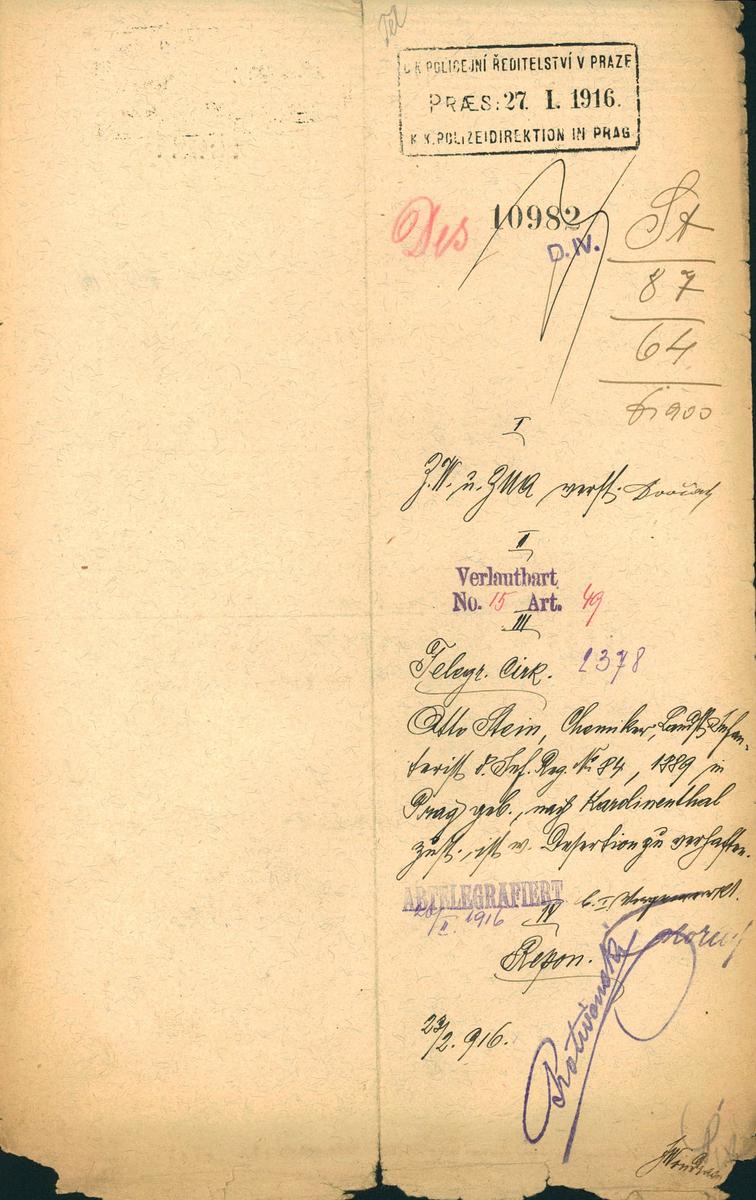 C.K. POLICEJNÍ ŘEDITELSTVÍ V PRAZE
PRÆS: 27. I. 1916.
K.K. POLIZEIDIREKTION IN PRAG
10982
Des
D. IV.
St
87
64
I
Z.W. u. ZMA verst.
II
Verlautbart
No. 15 Art. 49
III
Telegr. Cirk. 2378
Otto Stein, Chemiker, Landst. Infan-
terist d. Inf. Reg. No 84, 1889 in
Prag geb., nach Karolinenthal
zust., ist w. Desertion zu verhaften.
ABTELEGRAFIERT
II 1916
IV
Repon.
23/2. 916.